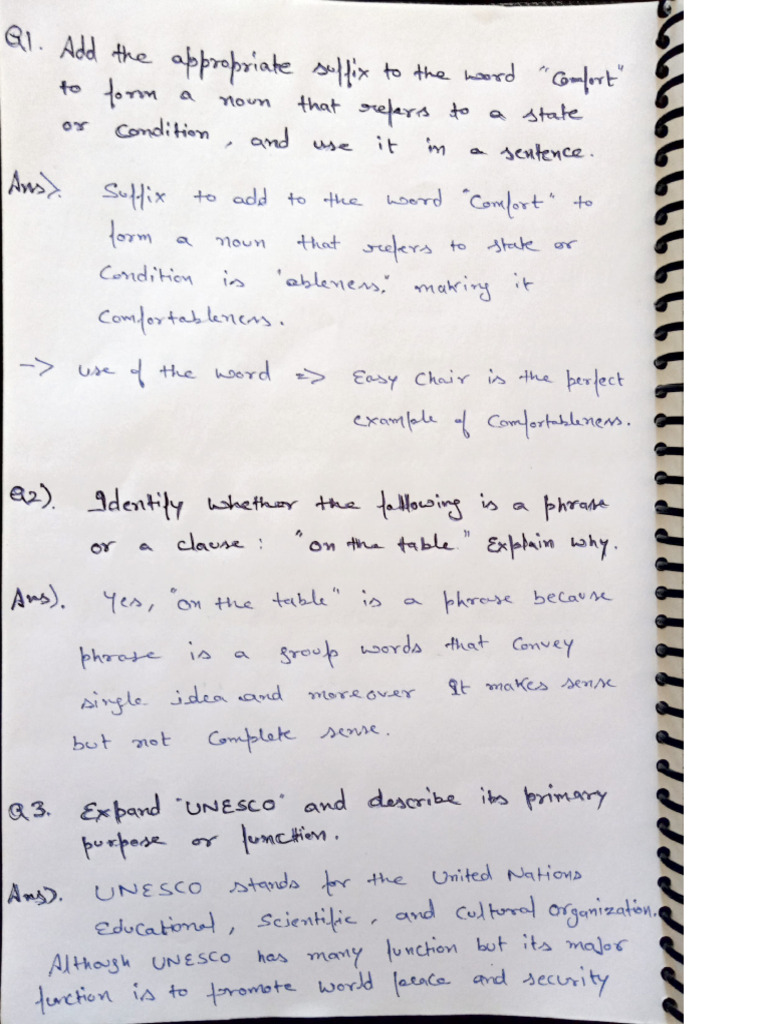 Q1. Add the appropriate suffix to the word "Comfort"
to form a noun that refers to a state
or condition, and use it in a sentence.
Ans). Suffix to add to the word "Comfort" to
form a noun that refers to state or
Condition is 'ableness,' making it
Comfortableness.
-> use of the word => Easy Chair is the perfect
example of Comfortableness.
Q2). Identify whether the following is a phrase
or a clause: "on the table." Explain why.
Ans). Yes, "on the table" is a phrase because
phrase is a group words that convey
single idea and moreover It makes sense
but not Complete sense.
Q3. Expand "UNESCO" and describe its primary
purpose or function.
Ans). UNESCO stands for the United Nations
Educational, Scientific, and Cultural Organization.
Although UNESCO has many function but its major
function is to promote world peace and security